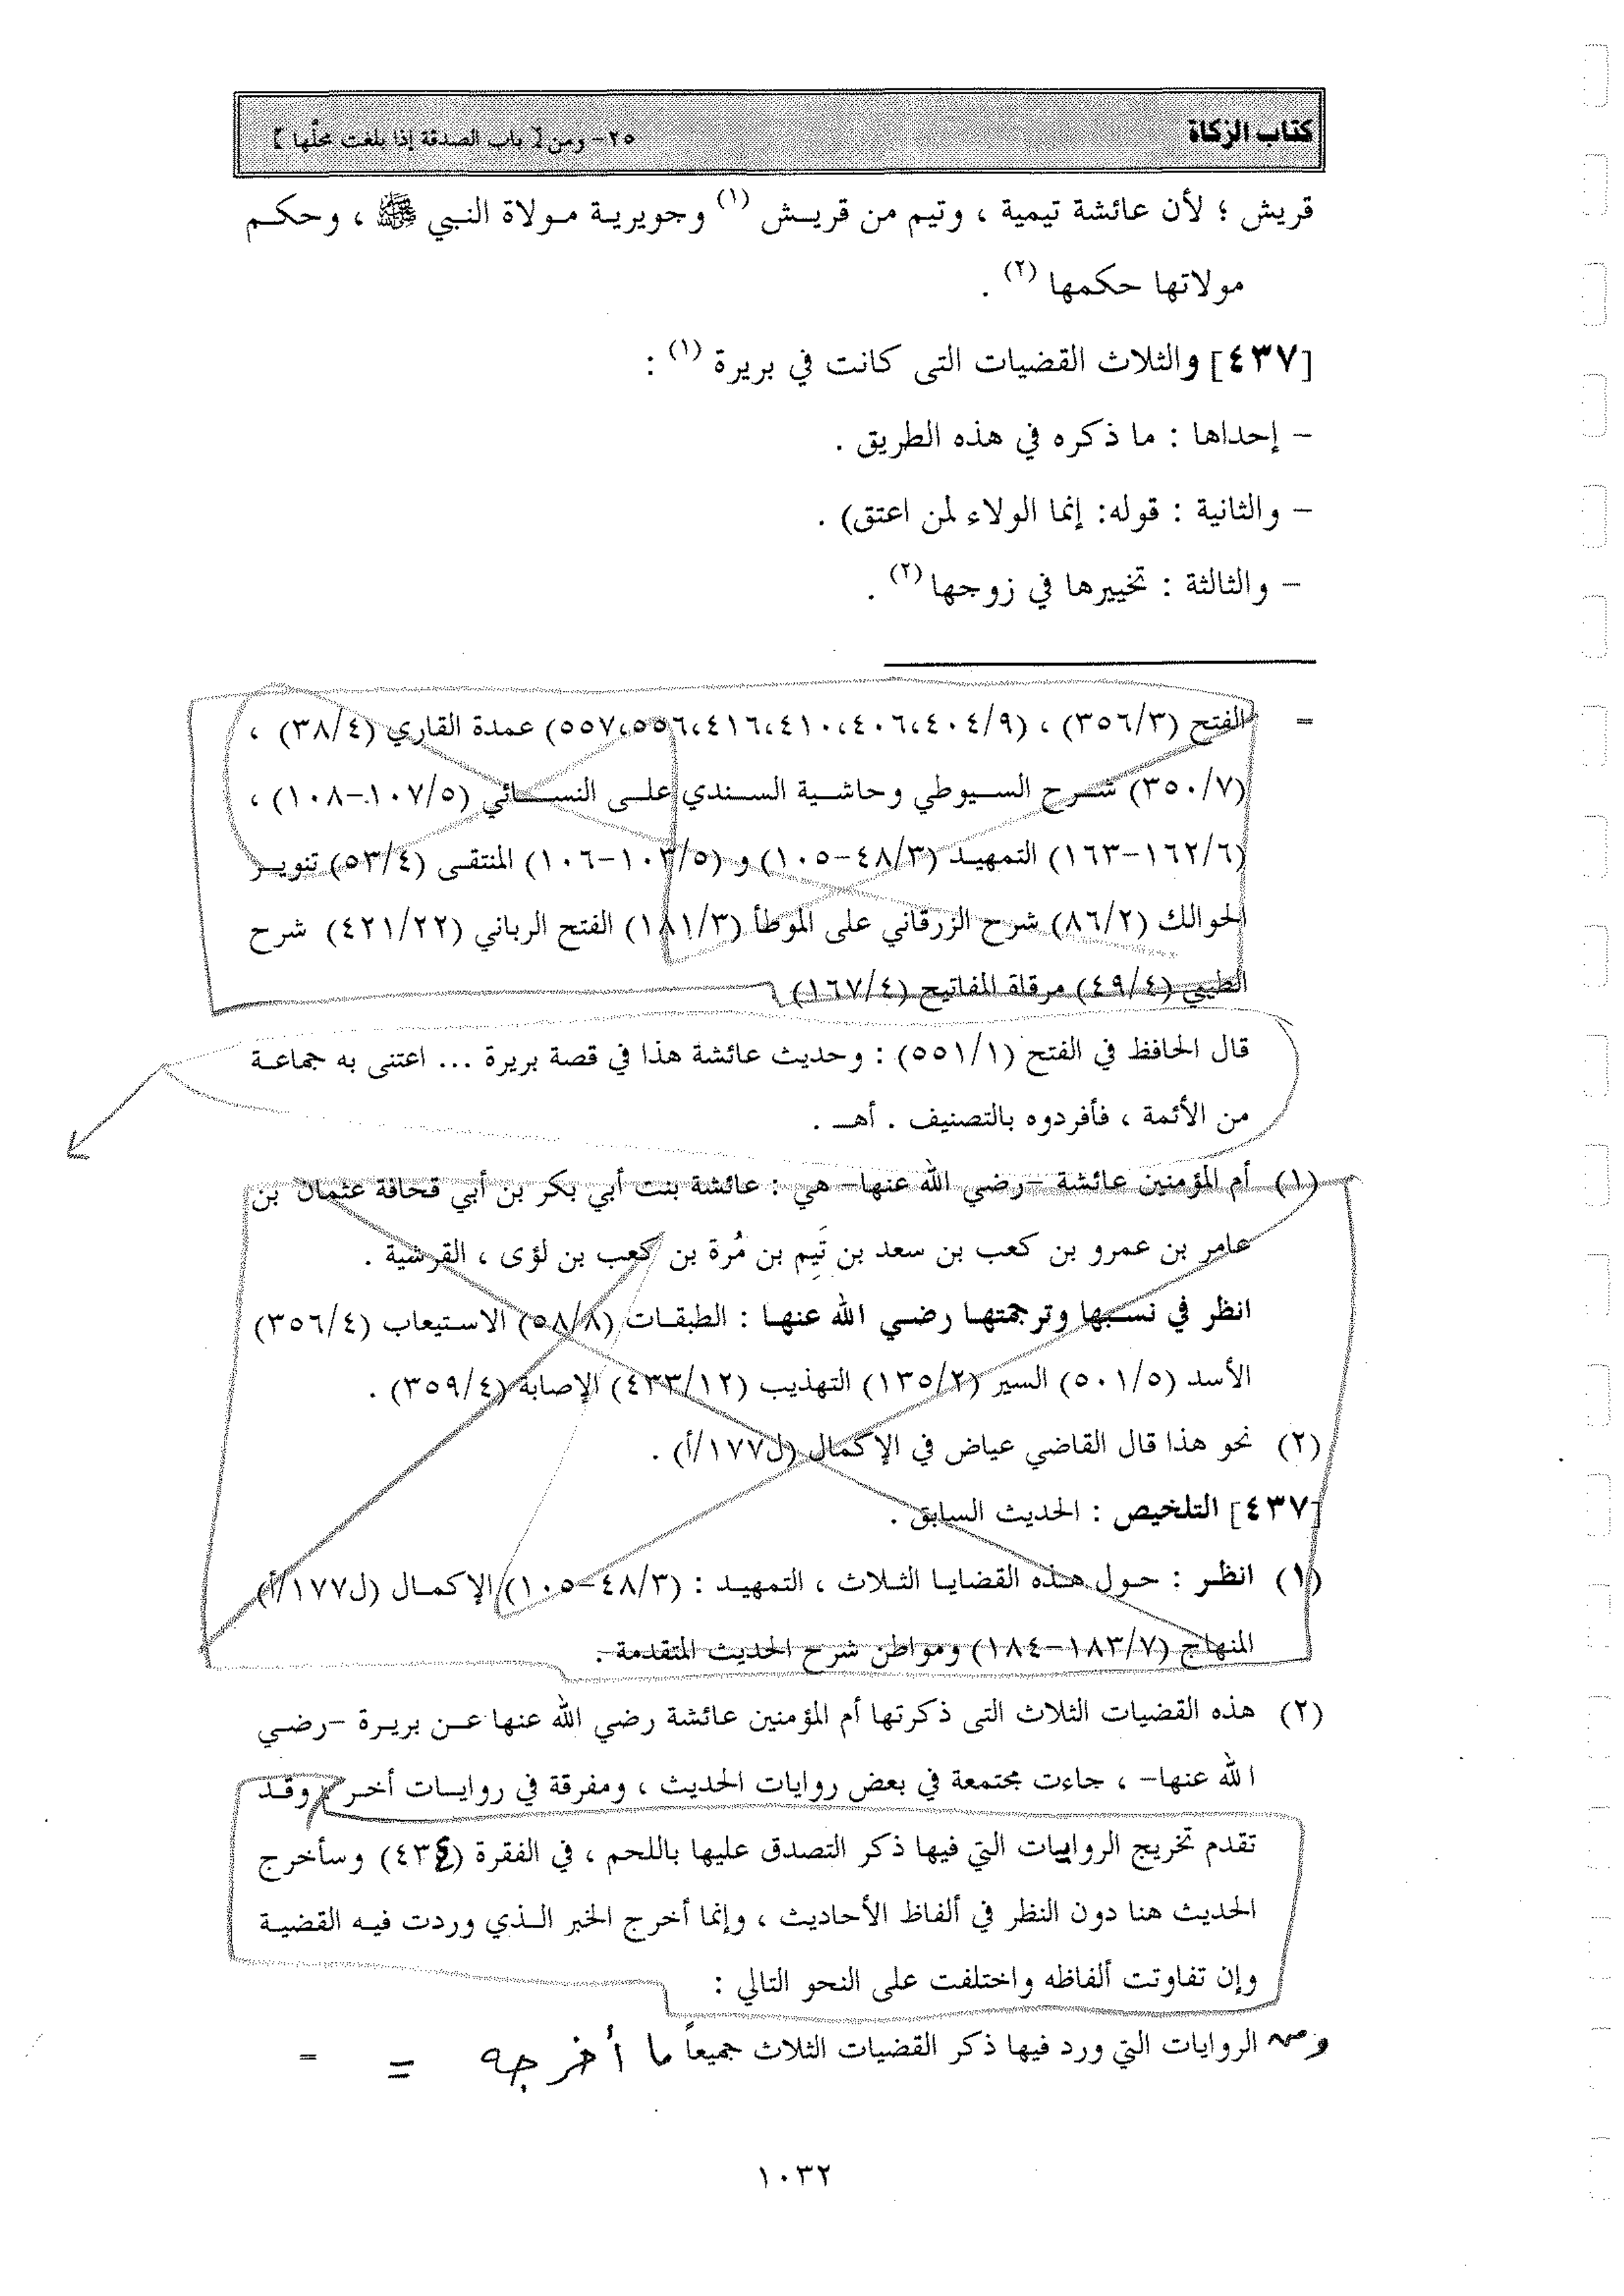 كتاب الزكاة
٢٥- ومن [ باب الصدقة إذا بلغت محلّها ]
قريش ؛ لأن عائشة تيمية ، وتيم من قريش (١) وجويرية مولاة النبي ﷺ ، وحكم
مولاتها حكمها (٢) .
[٤٣٧] والثلاث القضيات التى كانت في بريرة (١) :
– إحداها : ما ذكره في هذه الطريق .
– والثانية : قوله: إنما الولاء لمن اعتق) .
– والثالثة : تخييرها في زوجها (٢) .
= الفتح (٣٥٦/٣) ، (٤٠٤/٩،٤٠٦،٤١٠،٤١٦،٥٥٦،٥٥٧) عمدة القاري (٣٨/٤) ،
(٣٥٠/٧) شرح السيوطي وحاشية السندي على النسائي (١٠٧/٥-١٠٨) ،
(١٦٢/٦-١٦٣) التمهيد (٤٨/٣-١٠٥) و (١٠٣/٥-١٠٦) المنتقى (٥٣/٤) تنوير
الحوالك (٨٦/٢) شرح الزرقاني على الموطأ (١٨١/٣) الفتح الرباني (٤٢١/٢٢) شرح
الطيبي (٤٩/٤) مرقاة المفاتيح (١٦٧/٤)
قال الحافظ في الفتح (٥٥١/١) : وحديث عائشة هذا في قصة بريرة ... اعتنى به جماعة
من الأئمة ، فأفردوه بالتصنيف . أهـ .
(١) أم المؤمنين عائشة –رضي الله عنها– هي : عائشة بنت أبي بكر بن أبي قحافة عثمان بن
عامر بن عمرو بن كعب بن سعد بن تَيِم بن مُرة بن كعب بن لؤى ، القرشية .
انظر في نسبها وترجمتها رضي الله عنها : الطبقات (٥٨/٨) الاستيعاب (٣٥٦/٤)
الأسد (٥٠١/٥) السير (١٣٥/٢) التهذيب (٤٣٣/١٢) الإصابة (٣٥٩/٤) .
(٢) نحو هذا قال القاضي عياض في الإكمال (ل١٧٧/أ) .
[٤٣٧] التلخيص : الحديث السابق .
(١) انظر : حول هذه القضايا الثلاث ، التمهيد : (٤٨/٣-١٠٥) الإكمال (ل١٧٧/أ)
المنهاج (١٨٣/٧-١٨٤) ومواطن شرح الحديث المتقدمة .
(٢) هذه القضيات الثلاث التى ذكرتها أم المؤمنين عائشة رضي الله عنها عن بريرة –رضي
الله عنها– ، جاءت مجتمعة في بعض روايات الحديث ، ومفرقة في روايات أخر ، وقد
تقدم تخريج الروايات التي فيها ذكر التصدق عليها باللحم ، في الفقرة (٤٣٤) وسأخرج
الحديث هنا دون النظر في ألفاظ الأحاديث ، وإنما أخرج الخبر الذي وردت فيه القضية
وإن تفاوتت ألفاظه واختلفت على النحو التالي :
ومن الروايات التي ورد فيها ذكر القضيات الثلاث جميعاً ما أخرجه = =
١٠٣٢